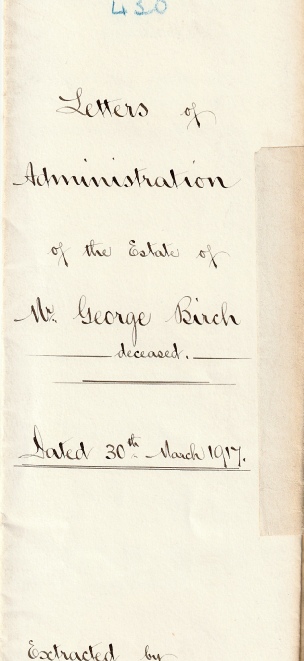 430
Letters of
Administration
of the Estate of
Mr. George Birch
deceased.
Dated 30th March 1917.
Extracted by